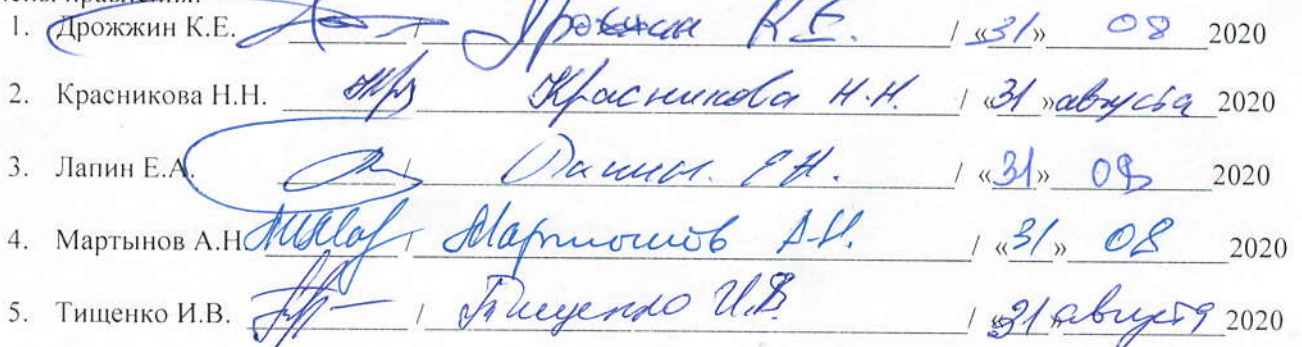 члены правления:
1. Дрожжин К.Е. / Дрожжин К.Е. / «31» 08 2020
2. Красникова Н.Н. Красникова Н.Н. / «31» августа 2020
3. Лапин Е.А. / Е.А. / «31» 08 2020
4. Мартынов А.Н. / Мартынов А.Н. / «31» 08 2020
5. Тищенко И.В. / Тищенко И.В. / «31» августа 2020